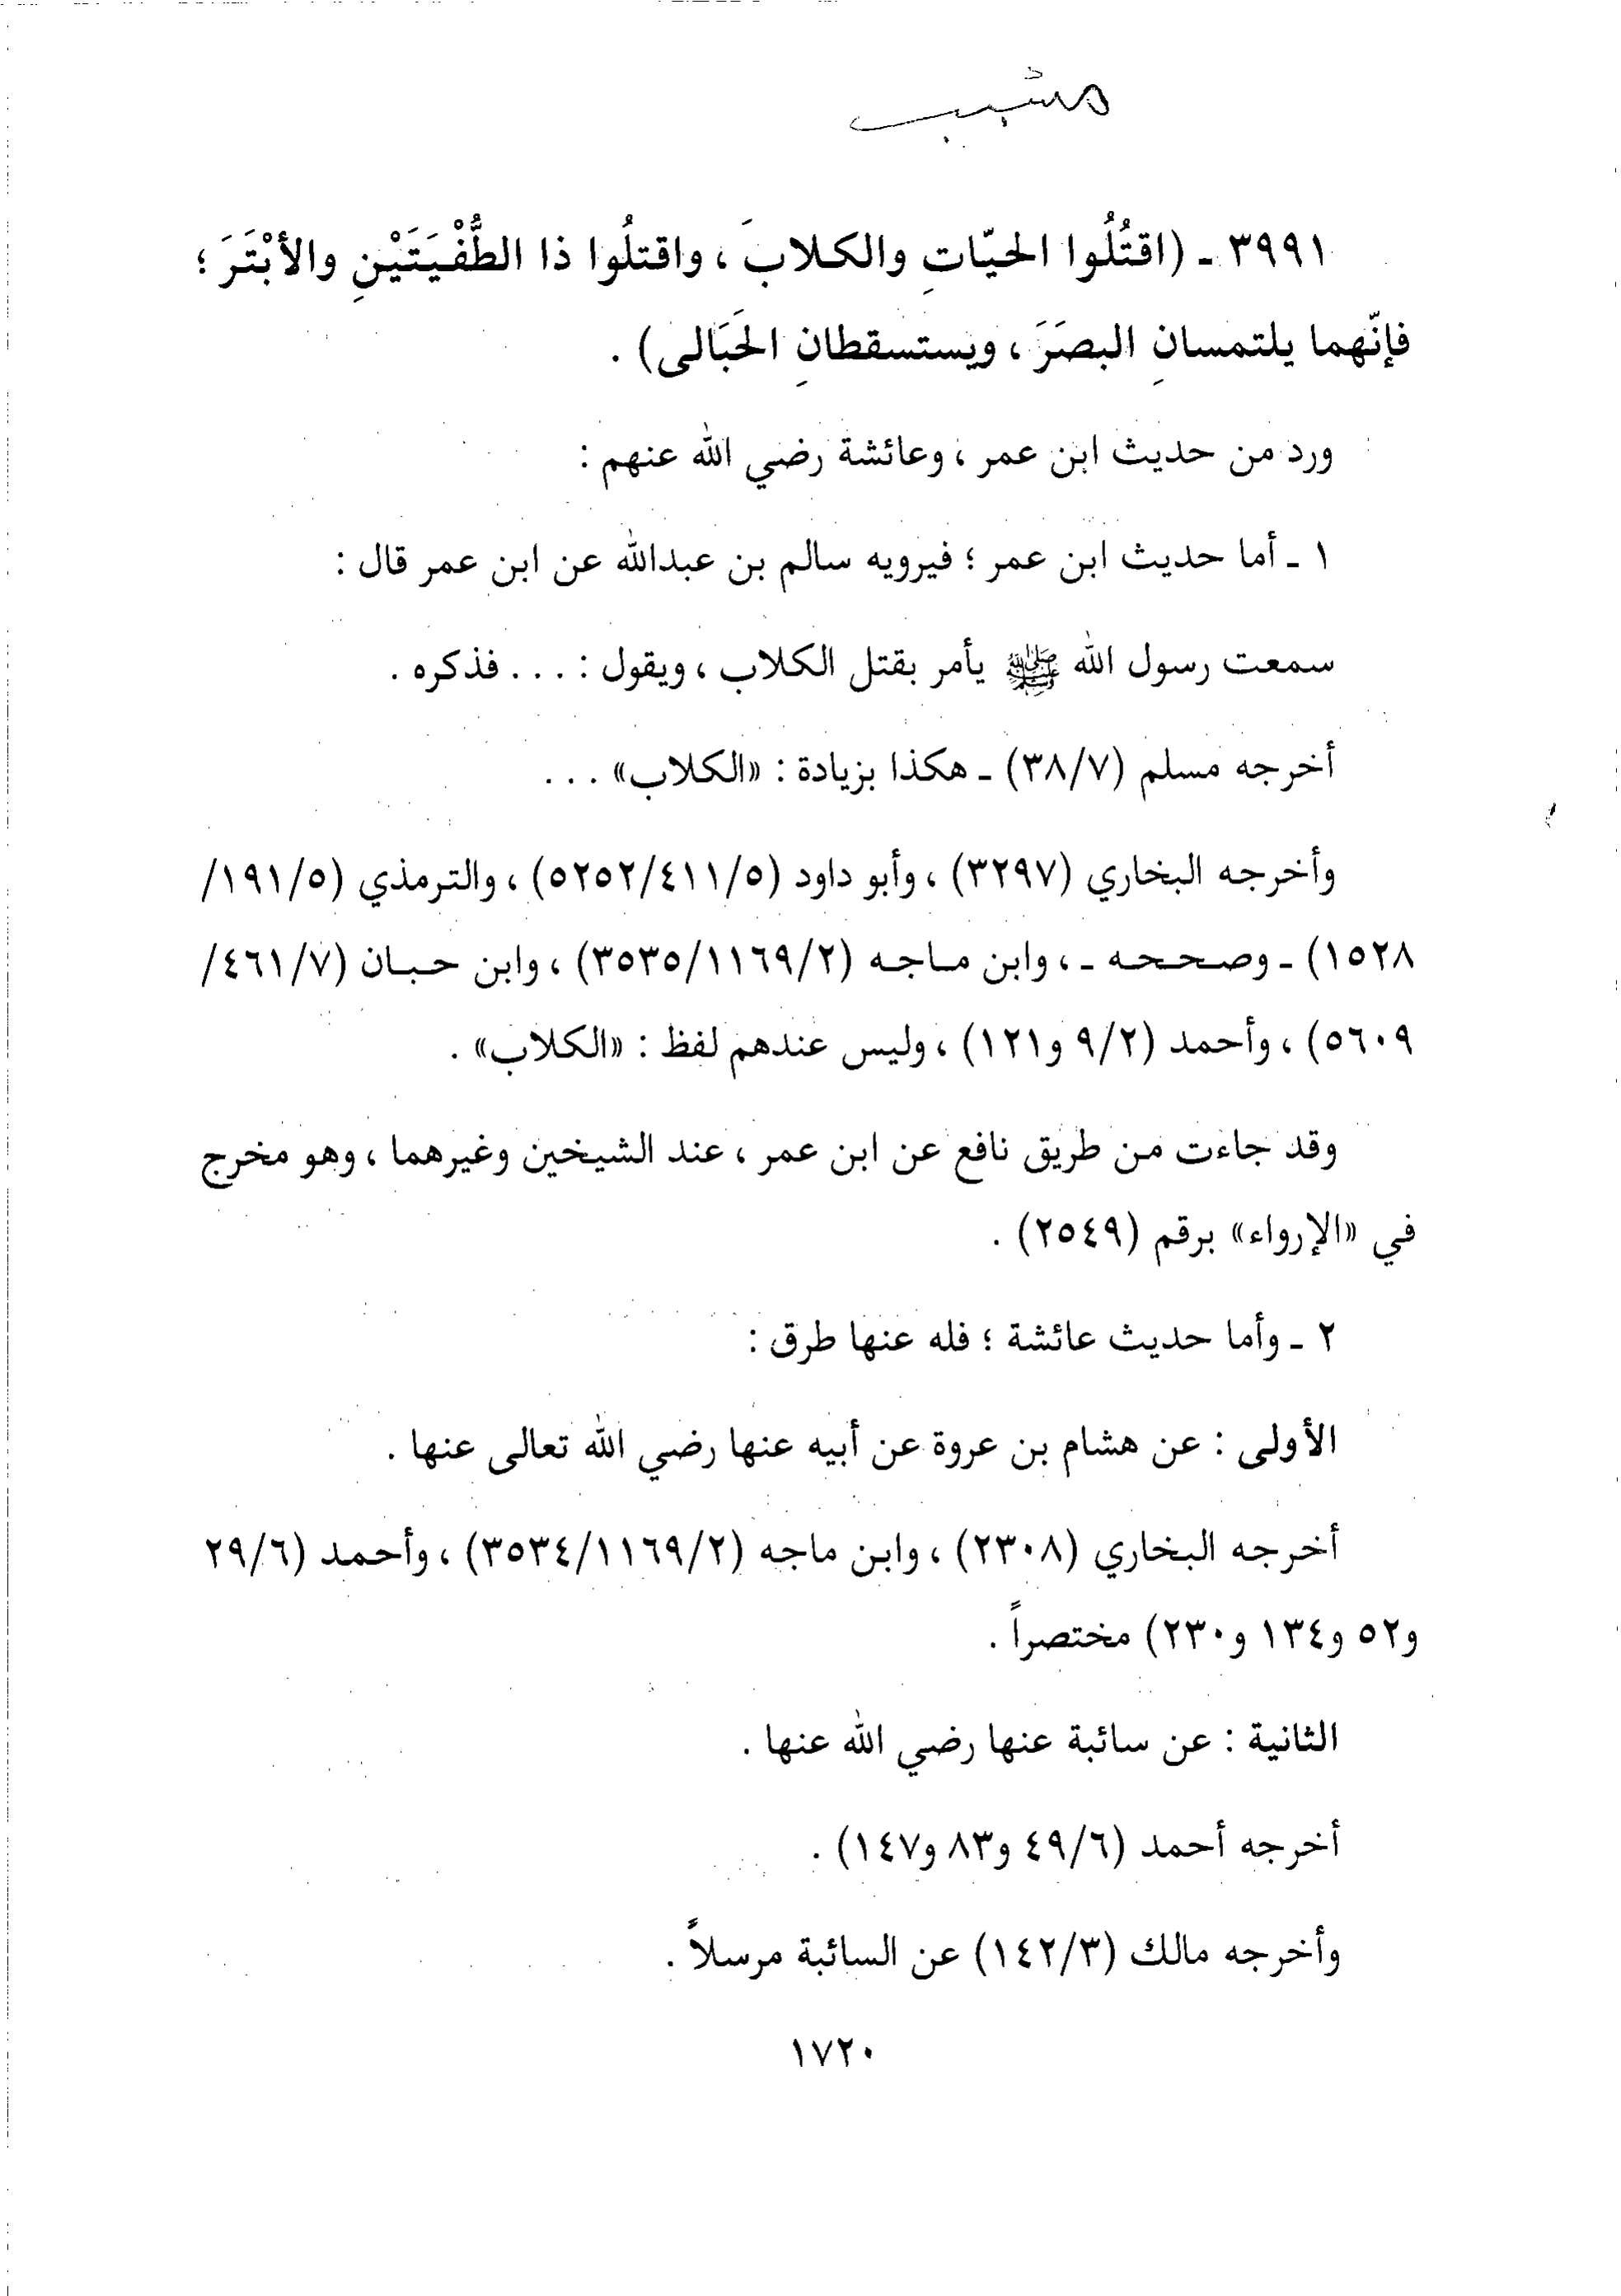 مشبب
٣٩٩١ ـ (اقتُلُوا الحيّاتِ والكلابَ ، واقتلُوا ذا الطُّفْيَتَيْنِ والأبْتَرَ ؛
فإنّهما يلتمسانِ البصَرَ ، ويستسقطانِ الحَبَالى) .
ورد من حديث ابن عمر ، وعائشة رضي الله عنهم :
١ ـ أما حديث ابن عمر ؛ فيرويه سالم بن عبدالله عن ابن عمر قال :
سمعت رسول الله ﷺ يأمر بقتل الكلاب ، ويقول : . . . فذكره .
أخرجه مسلم (٣٨/٧) ـ هكذا بزيادة : «الكلاب» . . .
وأخرجه البخاري (٣٢٩٧) ، وأبو داود (٥٢٥٢/٤١١/٥) ، والترمذي (١٩١/٥/
١٥٢٨) ـ وصححه ـ ، وابن ماجه (٣٥٣٥/١١٦٩/٢) ، وابن حبان (٤٦١/٧/
٥٦٠٩) ، وأحمد (٩/٢ و١٢١) ، وليس عندهم لفظ : «الكلاب» .
وقد جاءت من طريق نافع عن ابن عمر ، عند الشيخين وغيرهما ، وهو مخرج
في «الإرواء» برقم (٢٥٤٩) .
٢ ـ وأما حديث عائشة ؛ فله عنها طرق :
الأولى : عن هشام بن عروة عن أبيه عنها رضي الله تعالى عنها .
أخرجه البخاري (٢٣٠٨) ، وابن ماجه (٣٥٣٤/١١٦٩/٢) ، وأحمد (٢٩/٦
و٥٢ و١٣٤ و٢٣٠) مختصراً .
الثانية : عن سائبة عنها رضي الله عنها .
أخرجه أحمد (٤٩/٦ و٨٣ و١٤٧) .
وأخرجه مالك (١٤٢/٣) عن السائبة مرسلاً .
١٧٢٠